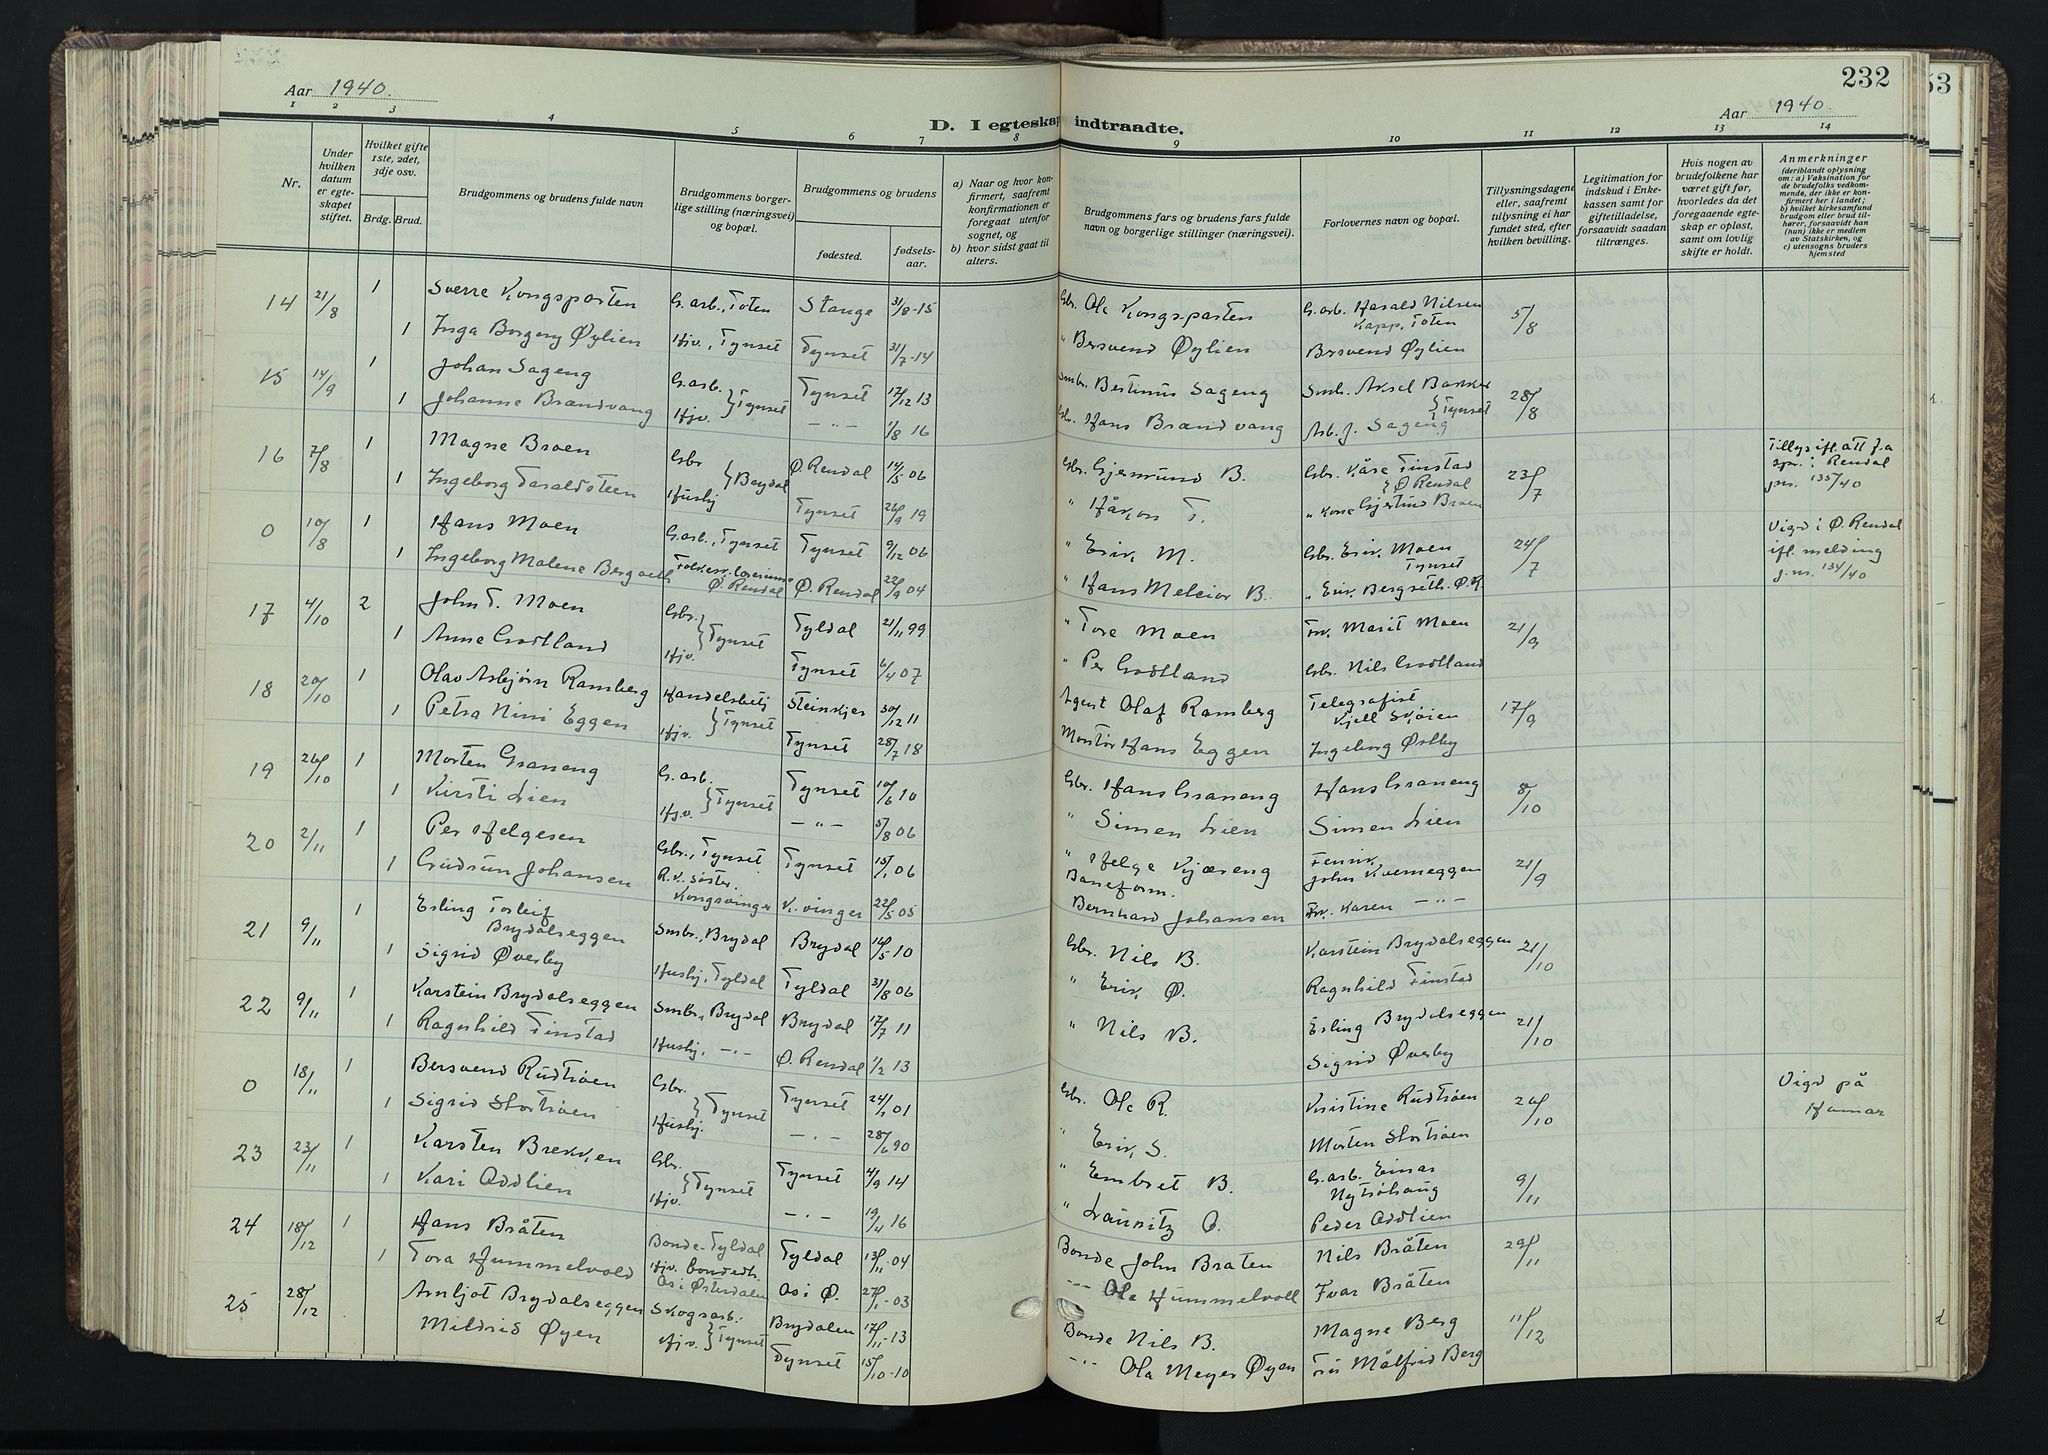 232
Aar 1940.
Aar 1940.
D. I egteskap indtraadte.
1 2 3 4 5 6 7 8 9 10 11 12 13 14
Nr.
Under hvilken datum er egteskapet stiftet.
Hvilket gifte 1ste, 2det, 3dje osv.
Brdg. Brud.
Brudgommens og brudens fulde navn
Brudgommens borgerlige stilling (næringsvei) og bopæl.
Brudgommens og brudens
fødested.
fødselsaar.
a) Naar og hvor konfirmert, saafremt konfirmationen er foregaat utenfor sognet, og
b) hvor sidst gaat til alters.
Brudgommens fars og brudens fars fulde navn og borgerlige stillinger (næringsvei).
Forlovernes navn og bopæl.
Tillysningsdagene eller, saafremt tillysning ei har fundet sted, efter hvilken bevilling.
Legitimation for indskud i Enkekassen samt for giftetilladelse, forsaavidt saadan tiltrænges.
Hvis nogen av brudefolkene har været gift før, hvorledes da det foregaaende egteskap er opløst, samt om lovlig skifte er holdt.
Anmerkninger (deriblandt oplysning om: a) Vaksination for de brudefolks vedkommende, der ikke er konfirmert her i landet; b) hvilket kirkesamfund brudgom eller brud tilhører, forsaavidt han (hun) ikke er medlem av Statskirken, og c) utensogns bruders hjemsted
14 21/8 1 Sverre Kongsparten G.arb., Toten Stange 31/8-15 Gbr. Ole Kongsparten G.arb. Harald Nilsen Kapp, Toten 5/8
1 Inga Borgeny Øylien Hjv., Tynset Tynset 31/7-14 " Bersvend Øylien Bersvend Øylien
15 14/9 1 Johan Sageng G.arb. } Tynset Tynset 17/12 13 Smbr. Bestinus Sageng Smb. Aksel Bakken } Tynset 28/8
1 Johanne Brandvang Hjv. — " — 1/8 16 Gbr. Hans Brandvang Arb. J. Sageng
16 7/8 1 Magne Broen Gbr } Brydal Ø. Rendal 14/5 06 Gbr. Gjermund B. Gbr. Kåre Finstad } Ø Rendal 23/7 Tillys ifl. att f.a spr. i Rendal j.nr. 135/40
1 Ingeborg Taraldsteen Husbj Tynset 26/9 19 " Håkon T. " Kone Gjertrud Broen
0 10/8 1 Hans Moen G.arb., Tynset Tynset 9/12 06 " Erik M. Gbr. Erik Moen Tynset 24/7 Vigd i Ø. Rendal ifl. melding j.nr. 134/40
1 Ingeborg Malene Bergseth Ø. Rendal Ø. Rendal 22/9 04 " Hans Melcior B. " Erik Bergseth. Ø.R.
17 4/10 2 John T. Moen Gbr. } Tynset Tyldal 21/11 99 " Tore Moen Frk. Marit Moen 21/9
1 Anne Godtland Hjv. Tynset 6/4 07 " Per Godtland Gbr. Nils Godtland
18 20/10 1 Olav Asbjørn Ramberg Handelsbetj } Tynset Steinkjer 30/12 11 Agent Olaf Ramberg Telegrafist Kjell Skøien 17/9
1 Petra Nini Eggen Hjv. Tynset 28/7 18 Montør Hans Eggen Ingeborg Østby
19 26/10 1 Morten Graneng G.arb. } Tynset Tynset 10/6 10 Gbr. Hans Graneng Hans Graneng 8/10
1 Kirsti Lien Hjv. — " — 5/8 06 " Simen Lien Simen Lien
20 2/11 1 Per Helgesen Gbr., Tynset Tynset 15/1 06 " Helge Kjæreng Fenrik John Kverneggen 21/9
1 Gudrun Johansen R.K. søster, Kongsvinger K.vinger 22/5 05 Baneform. Bernhard Johansen Frk. Karen — " —
21 9/11 1 Erling Torleif Brydalseggen Smbr., Brydal Brydal 14/5 10 Gbr. Nils B. Karstein Brydalseggen 21/10
1 Sigrid Øverby Husbj, Tyldal Tyldal 31/8 06 " Erik Ø. Ragnhild Finstad
22 9/11 1 Karstein Brydalseggen Smbr., Brydal Brydal 17/7 11 " Nils B. Erling Brydalseggen 21/10
1 Ragnhild Finstad Husbj. — " — Ø. Rendal 1/2 13 Sigrid Øverby
0 18/11 1 Bersvend Rudtrøen Gbr. } Tynset Tynset 24/1 01 Gbr. Ole R. Kristine Rudtrøen 20/10 Vigd på Hamar
1 Sigrid Stortrøen Husbj. — " — 28/6 90 " Erik S. Morten Stortrøen
23 23/11 1 Karsten Brekken Gbr. } Tynset Tynset 4/9 14 " Embret B. G.arb. Einar Nytrøhaug 9/11
1 Kari Oddlien Hjv. — " — 19/4 16 " Lauritz O. Peder Oddlien
24 18/12 1 Hans Bråten Bonde-Tyldal Tyldal 13/11-04 Bonde John Bråten Nils Bråten 29/11
1 Tora Hummelvold Hjv. bondedt. Os i Østerdalen Os i Ø. 27/1-03 — " — Ole Hummelvoll Ivar Bråten
25 28/12 Arnljot Brydalseggen Skogsarb. } Tynset Brydalen 17/11-13 Bonde Nils B. Magne Berg 11/12
Mildrid Øyen Hjv. Tynset 15/10-10 — " — Ola Meyer Øyen Fru Målfrid Berg